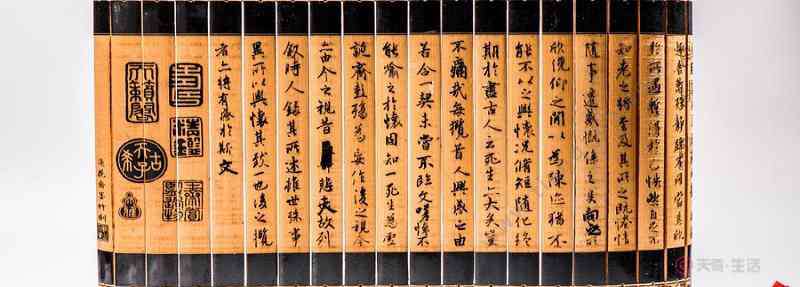 趣舍萬殊靜躁不同當其欣
於所遇暫得於己快然自足不
知老之將至及其所之既惓情
隨事遷感慨係之矣向之所
欣俛仰之間以為陳迹猶不
能不以之興懷況脩短隨化終
期於盡古人云死生亦大矣豈
不痛哉每攬昔人興感之由
若合一契未嘗不臨文嗟悼不
能喻之於懷固知一死生為虛
誕齊彭殤為妄作後之視今
亦由今之視昔悲夫故列
叙時人錄其所述雖世殊事
異所以興懷其致一也後之攬
者亦將有感於斯文
天奇·生活